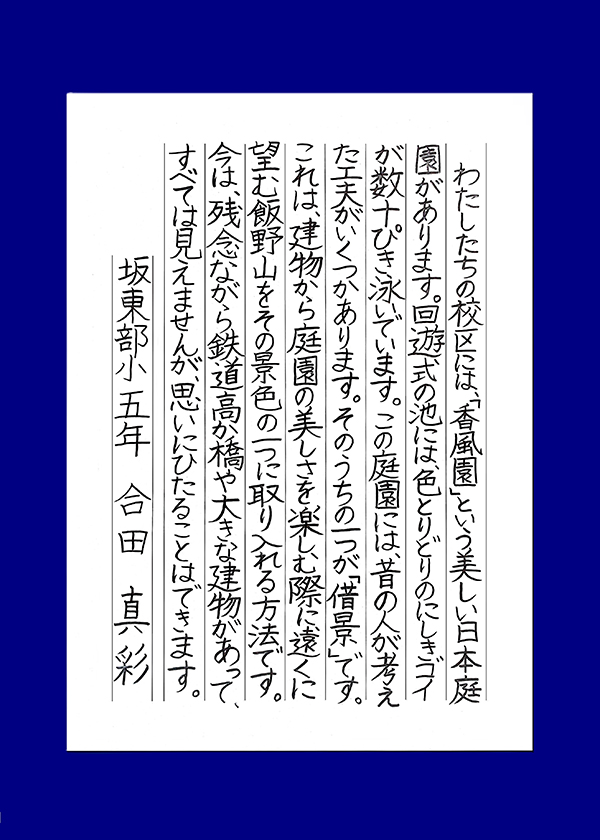 わたしたちの校区には、「香風園」という美しい日本庭
園があります。回遊式の池には、色とりどりのにしきゴイ
が数十ぴき泳いでいます。この庭園には、昔の人が考え
た工夫がいくつかあります。そのうちの一つが「借景」です。
これは、建物から庭園の美しさを楽しむ際に、遠くに
望む飯野山をその景色の一つに取り入れる方法です。
今は、残念ながら鉄道高か橋や大きな建物があって、
すべては見えませんが、思いにひたることはできます。
坂東部小五年 合田 真彩